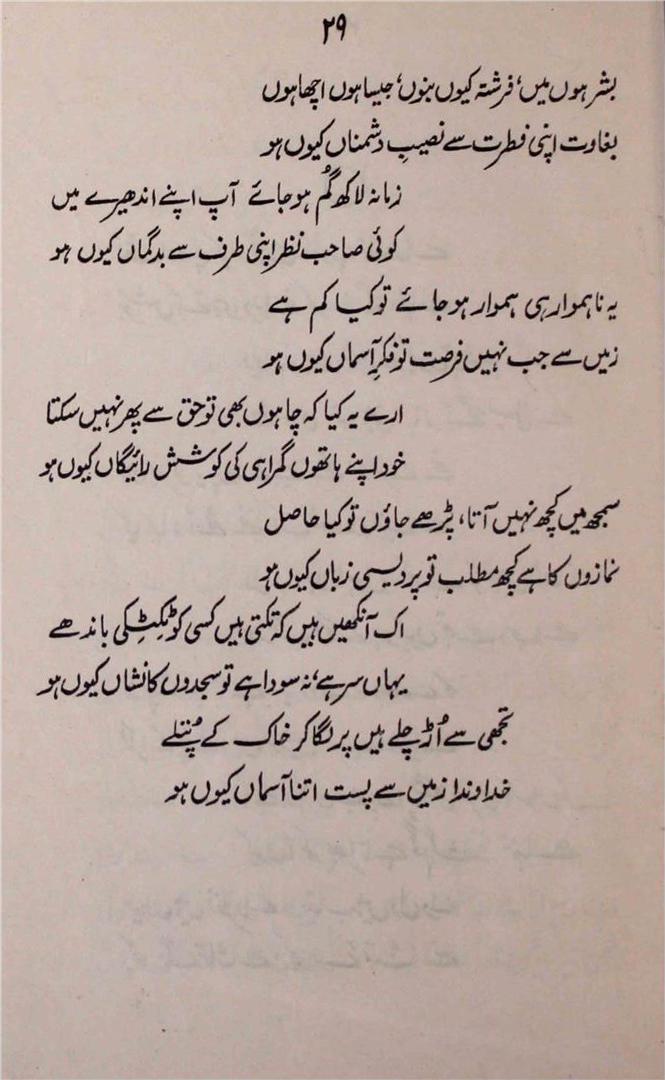 ۲۹
بشر ہوں میں، فرشتہ کیوں بنوں، جیسا ہوں اچھا ہوں
بغاوت اپنی فطرت سے نصیبِ دشمناں کیوں ہو
زمانہ لاکھ گُم ہو جائے آپ اپنے اندھیرے میں
کوئی صاحب نظر اپنی طرف سے بدگماں کیوں ہو
یہ ناہموار ہی ہموار ہو جائے تو کیا کم ہے
زمیں سے جب نہیں فرصت تو فکرِ آسماں کیوں ہو
ارے یہ کیا کہ چاہوں بھی تو حق سے پھر نہیں سکتا
خود اپنے ہاتھوں گمراہی کی کوشش رائیگاں کیوں ہو
سمجھ میں کچھ نہیں آتا، پڑھے جاؤں تو کیا حاصل
نمازوں کا ہے کچھ مطلب تو پردیسی زباں کیوں ہو
اک آنکھیں ہیں کہ تکتی ہیں کسی کو ٹِکٹِکی باندھے
یہاں سر ہے، نہ سودا ہے تو سجدوں کا نشاں کیوں ہو
تجھی سے اُڑ چلے ہیں پر لگا کر خاک کے پُتلے
خداوندا زمیں سے پست اتنا آسماں کیوں ہو